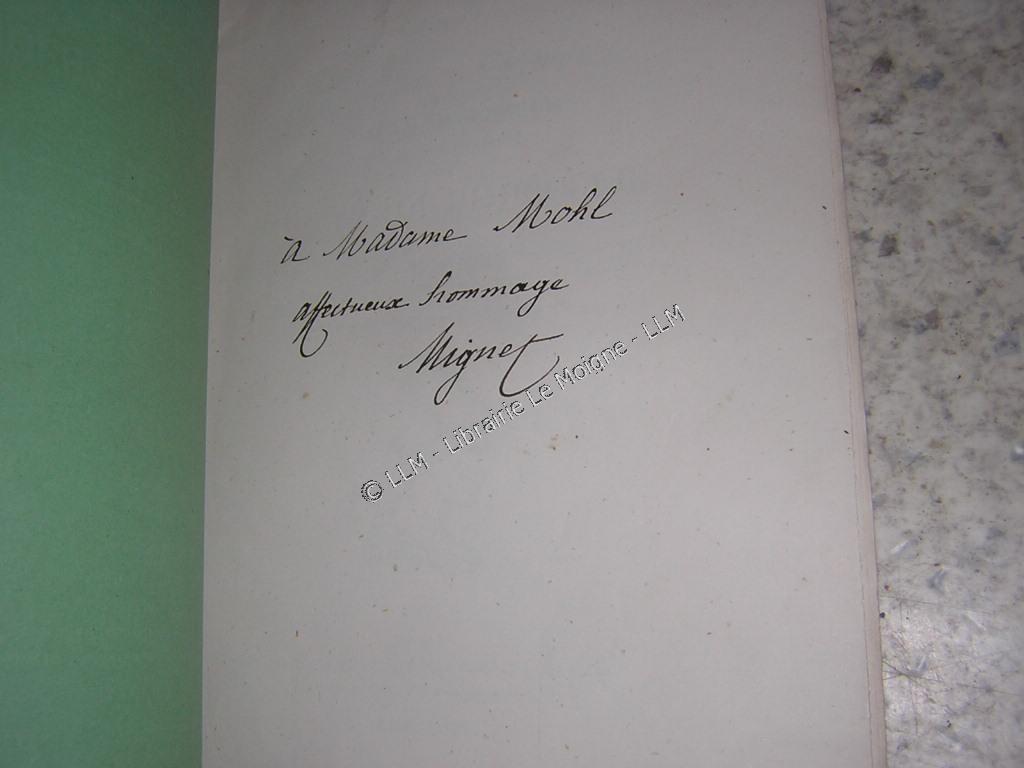 à Madame Mohl
affectueux hommage
Mignet
© LLM - Librairie Le Moigne - LLM